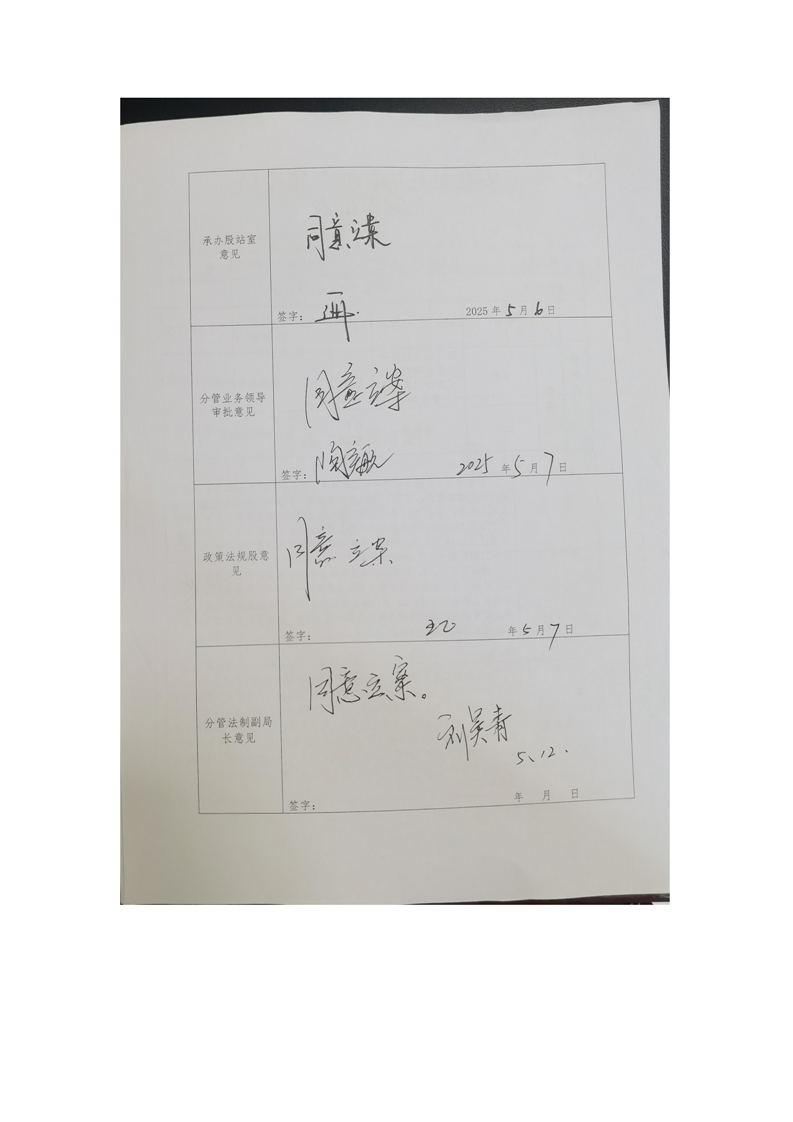 承办股站室
意见
同意立案
签字：
2025年5月6日
分管业务领导
审批意见
同意立案
签字：
2025年5月7日
政策法规股意
见
同意立案
签字：
年5月7日
分管法制副局
长意见
同意立案。
刘昊青
5.12.
签字：
年 月 日